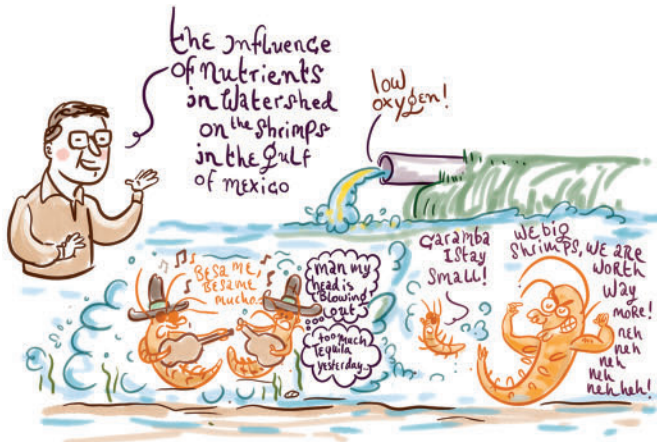 the influence
of Nutrients
in Watershed
on the Shrimps
in the gulf
of mexico
low
oxygen!
BESAME,
BESAME
mucho..
man my
head is
Blowing
out
too much
Tequila
yesterday..
Caramba
I stay
Small!
We big
Shrimps, we are
worth
way
more!
neh
neh
neh
neh
neh heh!